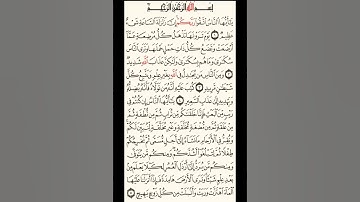 بِسْمِ ٱللَّهِ ٱلرَّحْمَٰنِ ٱلرَّحِيمِ
يَٰٓأَيُّهَا ٱلنَّاسُ ٱتَّقُوا۟ رَبَّكُمْ إِنَّ زَلْزَلَةَ ٱلسَّاعَةِ شَىْءٌ
عَظِيمٌ ۝ يَوْمَ تَرَوْنَهَا تَذْهَلُ كُلُّ مُرْضِعَةٍ عَمَّآ
أَرْضَعَتْ وَتَضَعُ كُلُّ ذَاتِ حَمْلٍ حَمْلَهَا وَتَرَى ٱلنَّاسَ
سُكَٰرَىٰ وَمَا هُم بِسُكَٰرَىٰ وَلَٰكِنَّ عَذَابَ ٱللَّهِ شَدِيدٌ
۝ وَمِنَ ٱلنَّاسِ مَن يُجَٰدِلُ فِى ٱللَّهِ بِغَيْرِ عِلْمٍ وَيَتَّبِعُ كُلَّ
شَيْطَٰنٍ مَّرِيدٍ ۝ كُتِبَ عَلَيْهِ أَنَّهُۥ مَن تَوَلَّاهُ فَأَنَّهُۥ يُضِلُّهُۥ
وَيَهْدِيهِ إِلَىٰ عَذَابِ ٱلسَّعِيرِ ۝ يَٰٓأَيُّهَا ٱلنَّاسُ إِن كُنتُمْ فِى
رَيْبٍ مِّنَ ٱلْبَعْثِ فَإِنَّا خَلَقْنَٰكُم مِّن تُرَابٍ ثُمَّ مِن نُّطْفَةٍ ثُمَّ
مِنْ عَلَقَةٍ ثُمَّ مِن مُّضْغَةٍ مُّخَلَّقَةٍ وَغَيْرِ مُخَلَّقَةٍ لِّنُبَيِّنَ لَكُمْ
وَنُقِرُّ فِى ٱلْأَرْحَامِ مَا نَشَآءُ إِلَىٰٓ أَجَلٍ مُّسَمًّى ثُمَّ نُخْرِجُكُمْ
طِفْلًا ثُمَّ لِتَبْلُغُوٓا۟ أَشُدَّكُمْ وَمِنكُم مَّن يُتَوَفَّىٰ
وَمِنكُم مَّن يُرَدُّ إِلَىٰٓ أَرْذَلِ ٱلْعُمُرِ لِكَيْلَا يَعْلَمَ مِنۢ
بَعْدِ عِلْمٍ شَيْـًٔا وَتَرَى ٱلْأَرْضَ هَامِدَةً فَإِذَآ أَنزَلْنَا عَلَيْهَا
ٱلْمَآءَ ٱهْتَزَّتْ وَرَبَتْ وَأَنۢبَتَتْ مِن كُلِّ زَوْجٍۭ بَهِيجٍ ۝